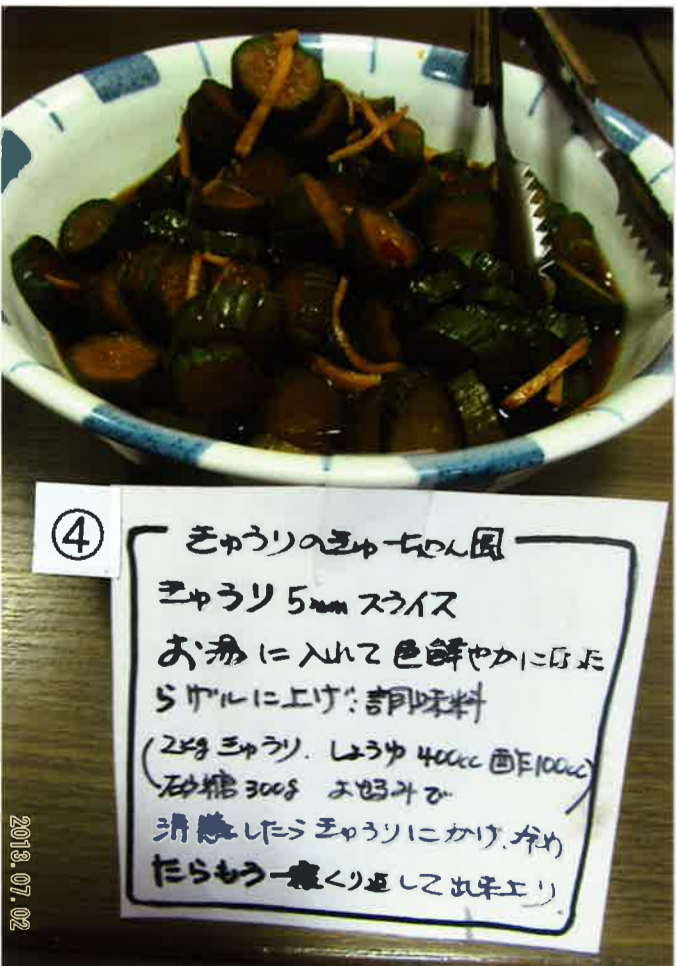 ④
きゅうりのきゅーちゃん風
きゅうり 5mm スライス
お湯に入れて色鮮やかになった
らザルに上げ、調味料
(2kgきゅうり、しょうゆ 400cc 酢100cc
砂糖 300g お好みで)
沸したらきゅうりにかけ、冷め
たらもう一度くり返して出来上り
2013.07.02